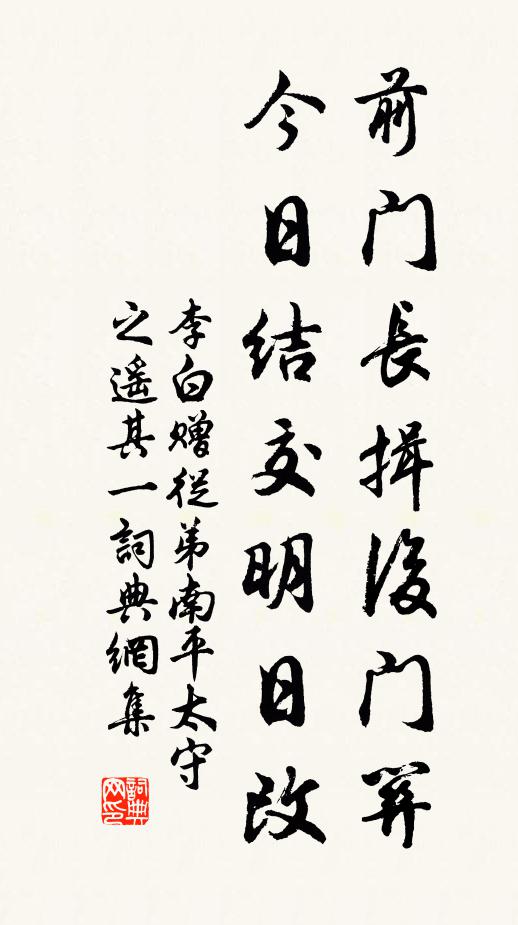 前門長揖後門關
今日結交明日改
李白贈從弟南平太守
之遙其一詞典網集
詞典
网印